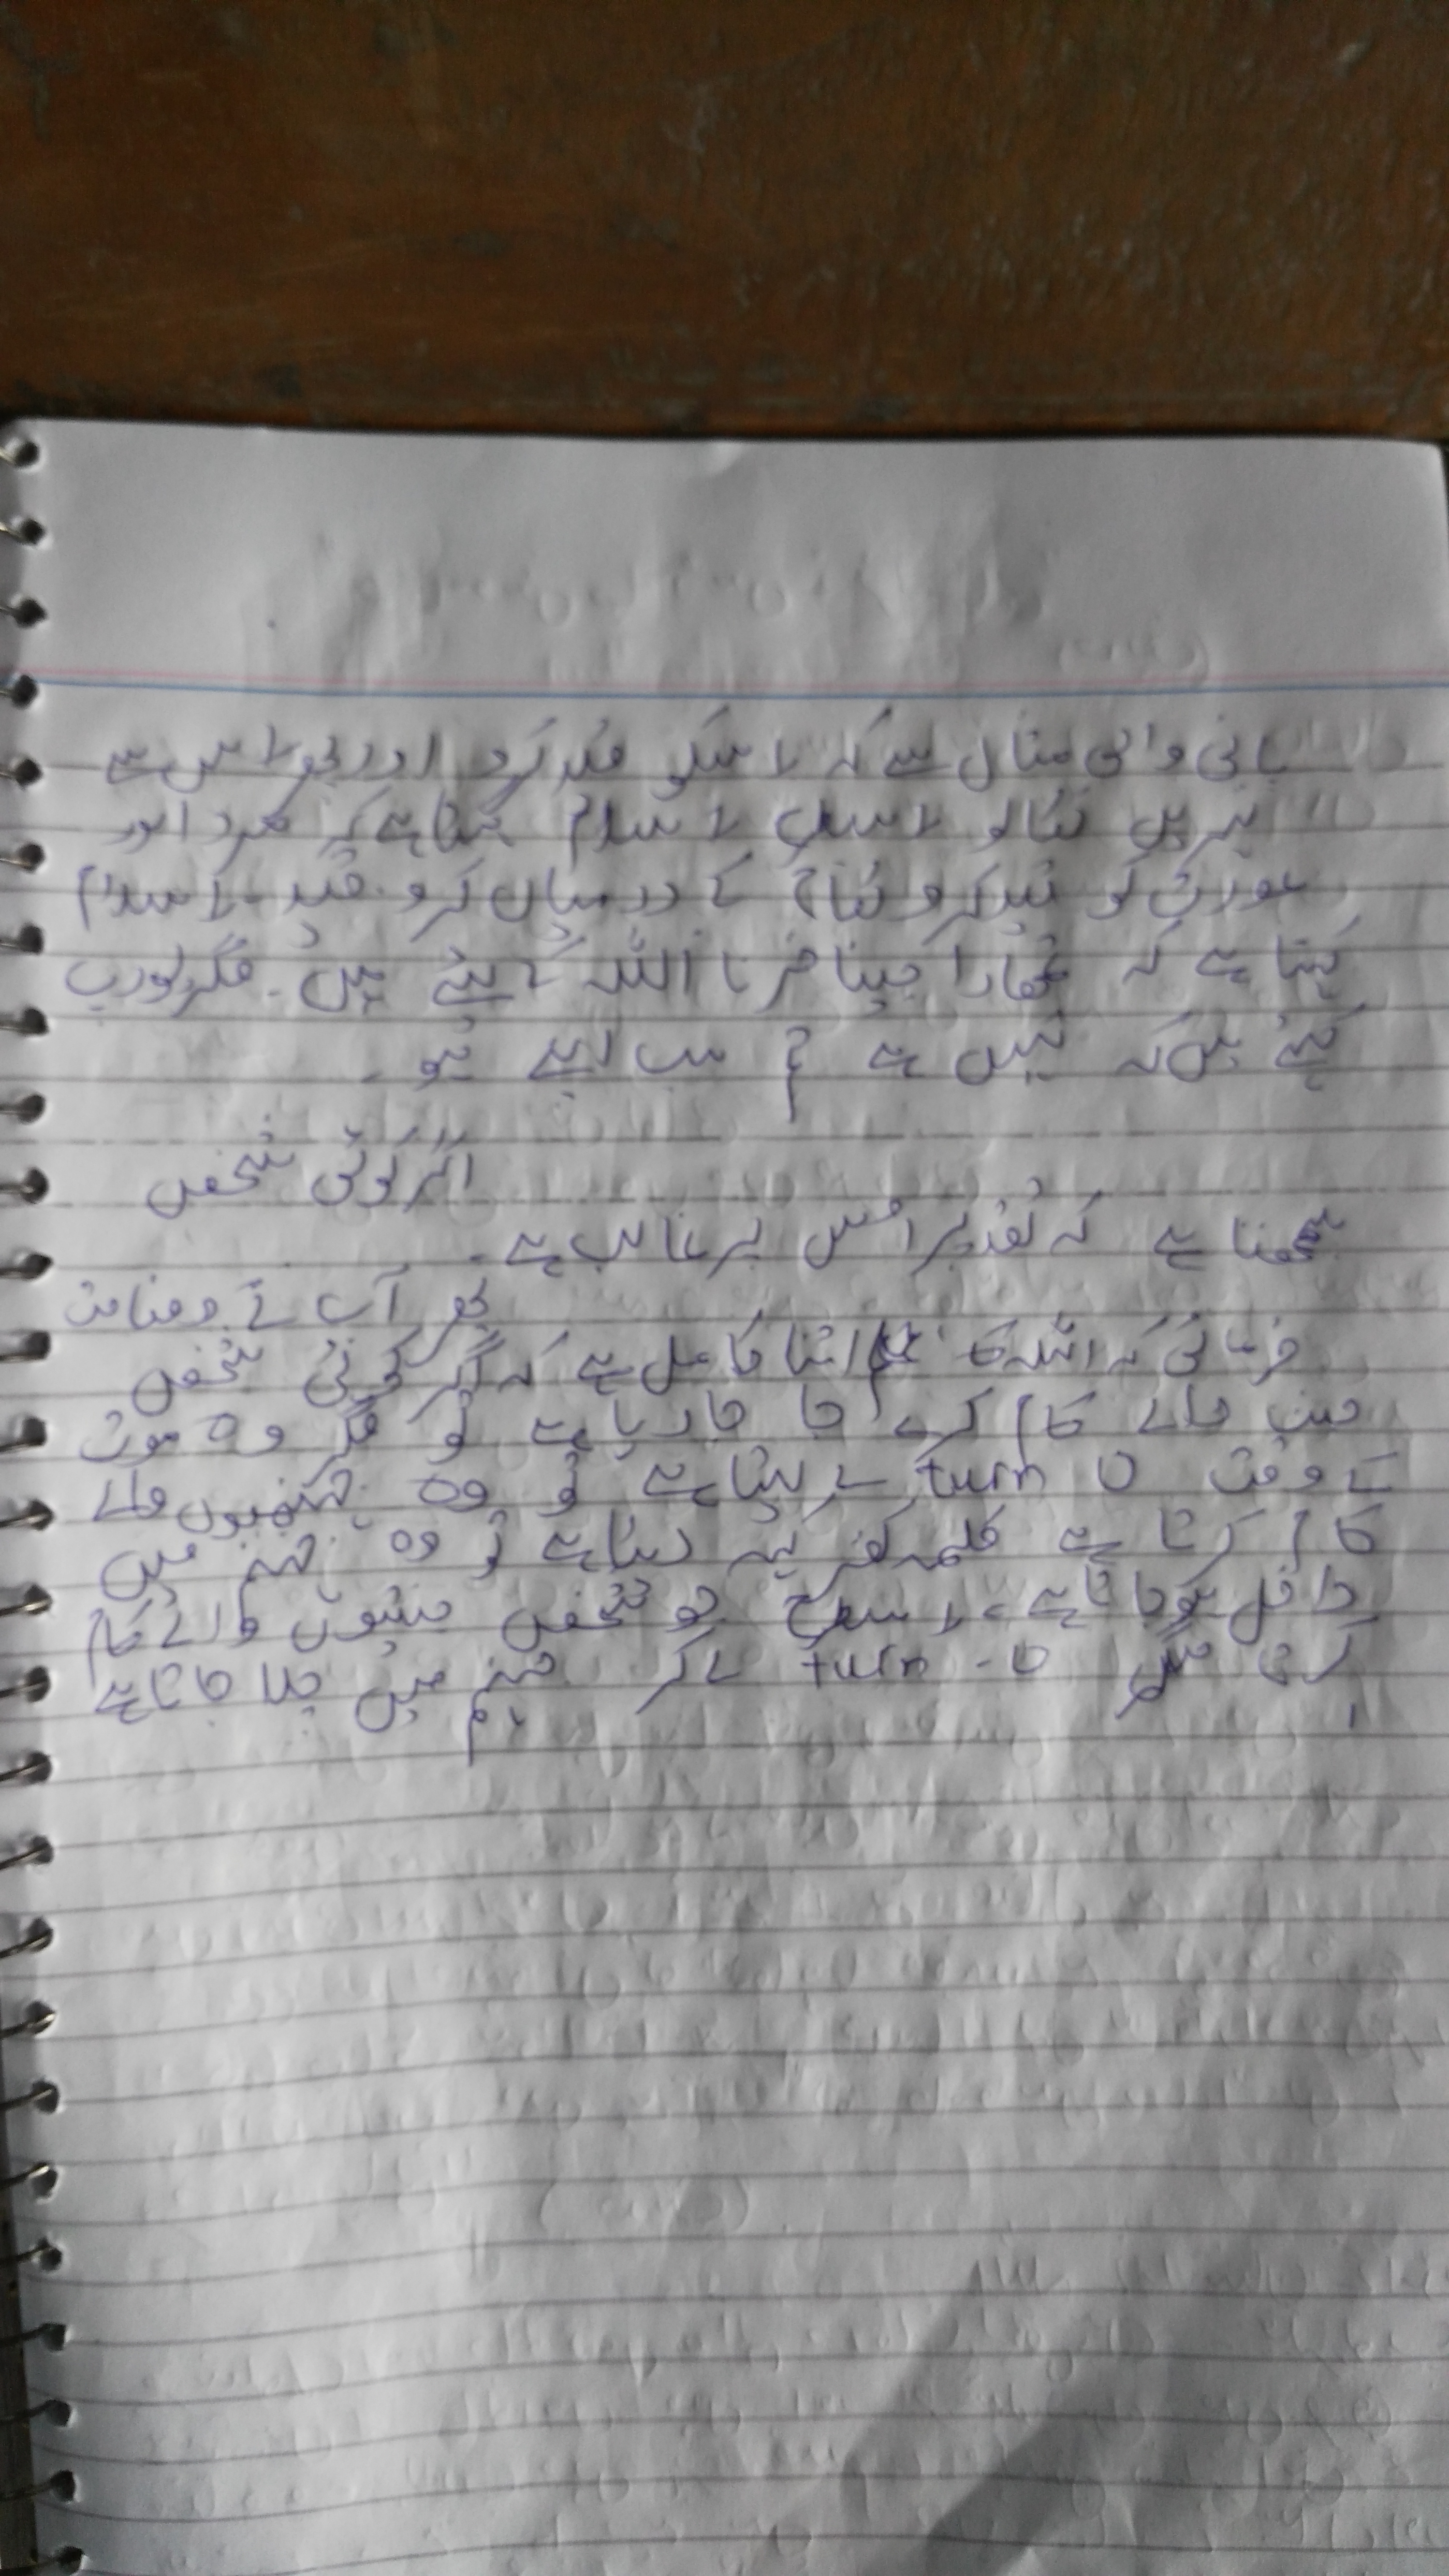 پانی والی مثال ہے کہ اسکو قید کرو اور پھر اس سے
نہریں نکالو اسطرح اسلام کہتا ہے کہ مرد اور
عورت کو قید کرو نکاح کے درمیاں کرو قید۔ اسلام
کہتا ہے کہ تمھارا جینا مرنا اللہ کے لیئے ہیں۔ مگر یورپ
کہتے ہیں کہ نہیں ہے تم سب اپنے ہو۔
اگر کوئی شخص
سمجھتا ہے کہ تقدیر اس پر غالب ہے۔
پھر آپ نے وضاحت
فرمائی کہ اللہ کا علم اتنا کامل ہے کہ اگر کوئی شخص
جنت والے کام کرے جا جارہا ہے تو مگر وہ موت
کے وقت U turn لے لیتا ہے تو وہ جہنمیوں والے
کام کرتا ہے کلمہ کفر کہہ دیتا ہے تو وہ جہنم میں
داخل ہوجاتا ہے۔ اسطرح جو شخص جنتیوں والے کام
کرتا مگر U-turn لےکر جہنم میں چلا جاتا ہے